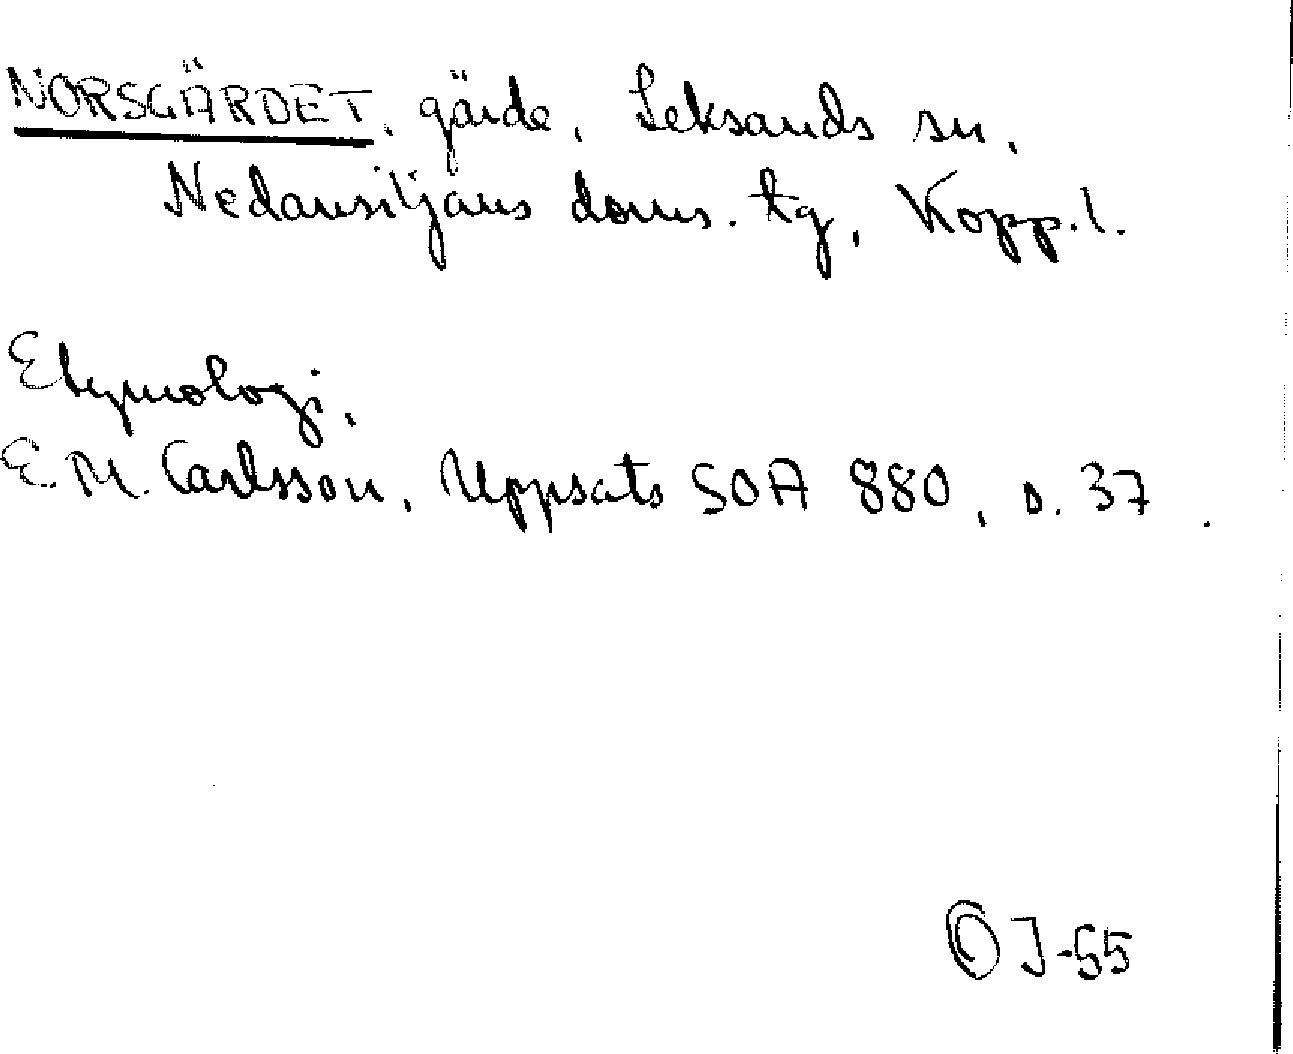 NORSGÄRDET, gärde, Leksands sn,
Nedansiljans doms. tg, Kopp.l.
Etymologi.
E.M. Carlsson, Uppsats SOA 880, s. 37.
OJ-55